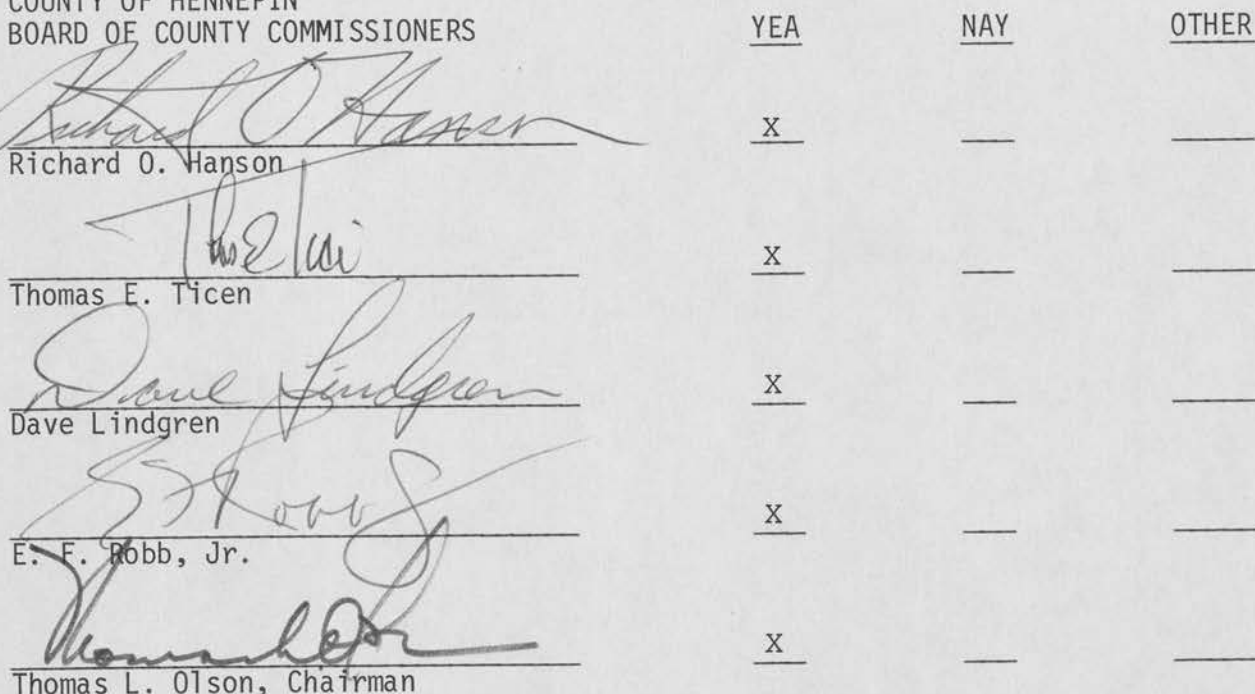 COUNTY OF HENNEPIN
BOARD OF COUNTY COMMISSIONERS YEA NAY OTHER
Richard O Hanson X
Richard O. Hanson
Thos E Tici X
Thomas E. Ticen
Dave Lindgren X
Dave Lindgren
E F Robb Jr X
E. F. Robb, Jr.
Thomas L Olson X
Thomas L. Olson, Chairman